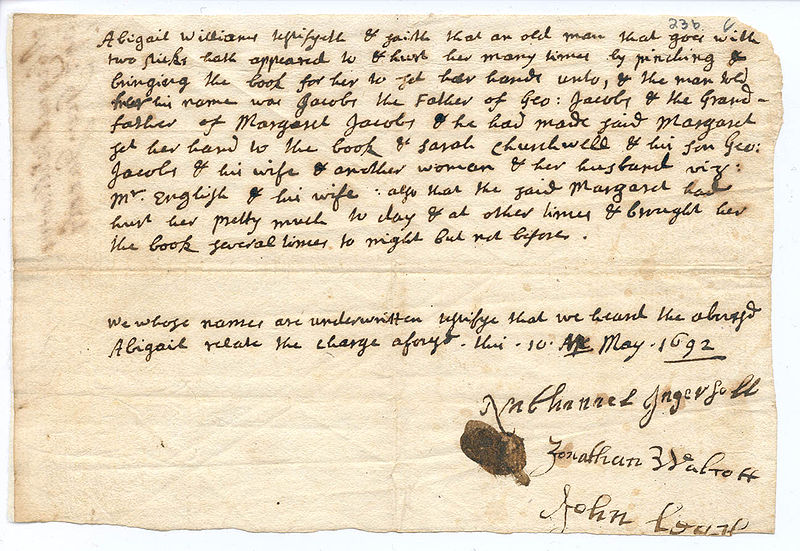 236 6
Abigail Williams testifyeth & saith that an old man that goes with
two sticks hath appeared to & hurt her many times by pinching &
bringing the book for her to set her hands unto, & the man told
her his name was Jacobs the Father of Geo: Jacobs & the Grand=
father of Margaret Jacobs & he had made said Margaret
set her hand to the book & Sarah Churchwell & his son Geo:
Jacobs & his wife & another woman & her husband viz:
Mr. English & his wife : also that the said Margaret had
hurt her pretty much to day & at other times & brought her
the book several times to night but not before.
We whose names are underwritten testifye that we heard the abovesd
Abigail relate the charge aforesd. this . 10. May . 1692
Nathanael Ingersoll
Jonathan Walcott
John